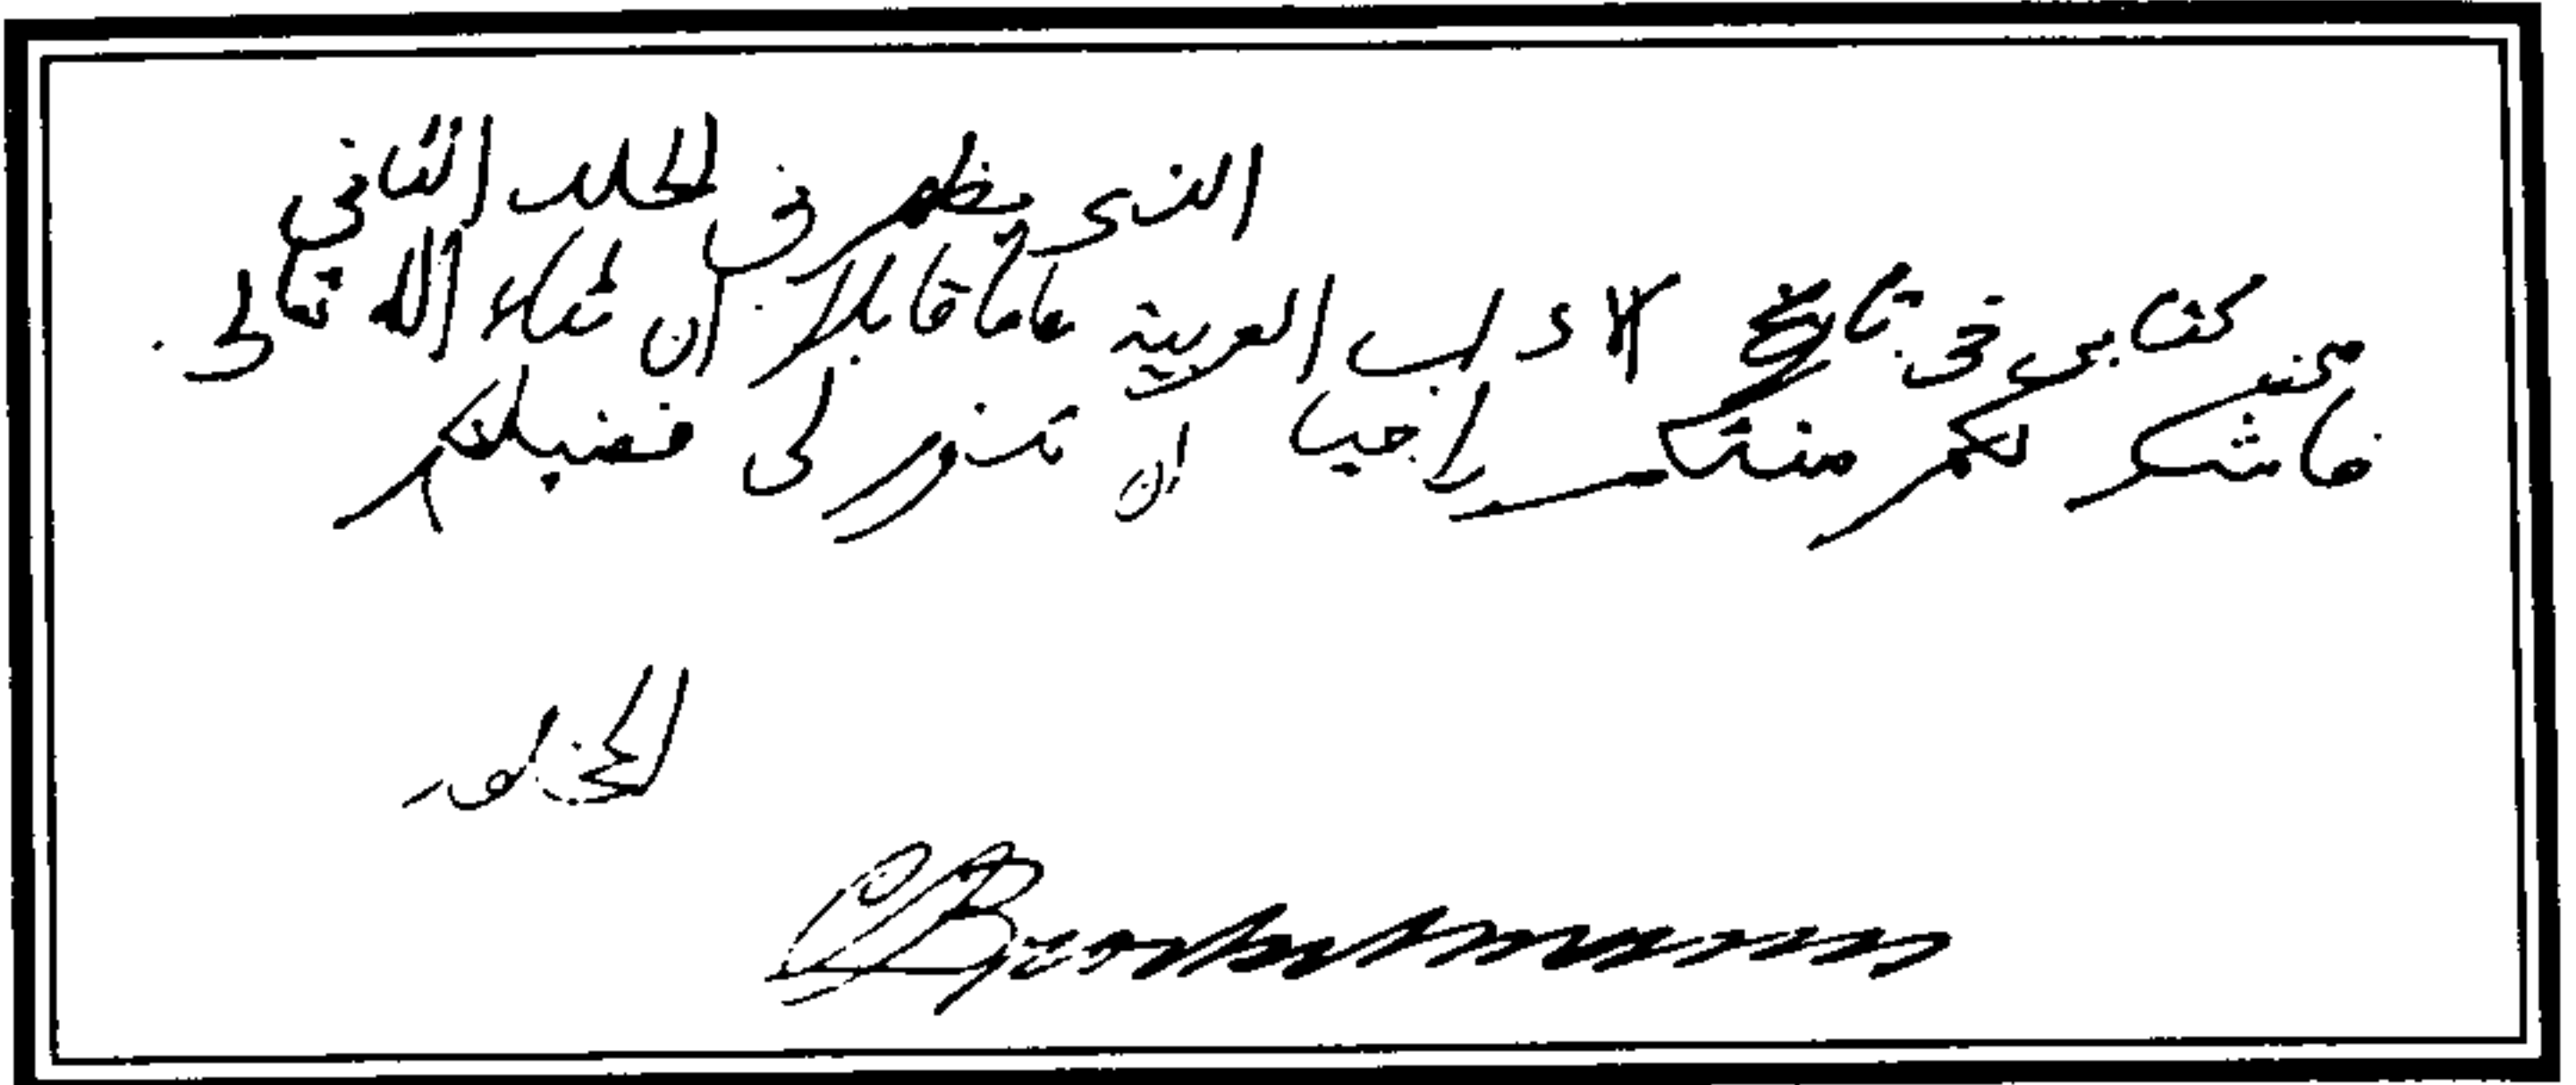 الذي يظهر في المجلد الثاني
من كتابي في تاريخ الآداب العربية عاما قابلا إن شاء الله تعالى.
فاشكر لكم منتكم راجيا أن فضيلتكم
المخلص
C Brockelmann